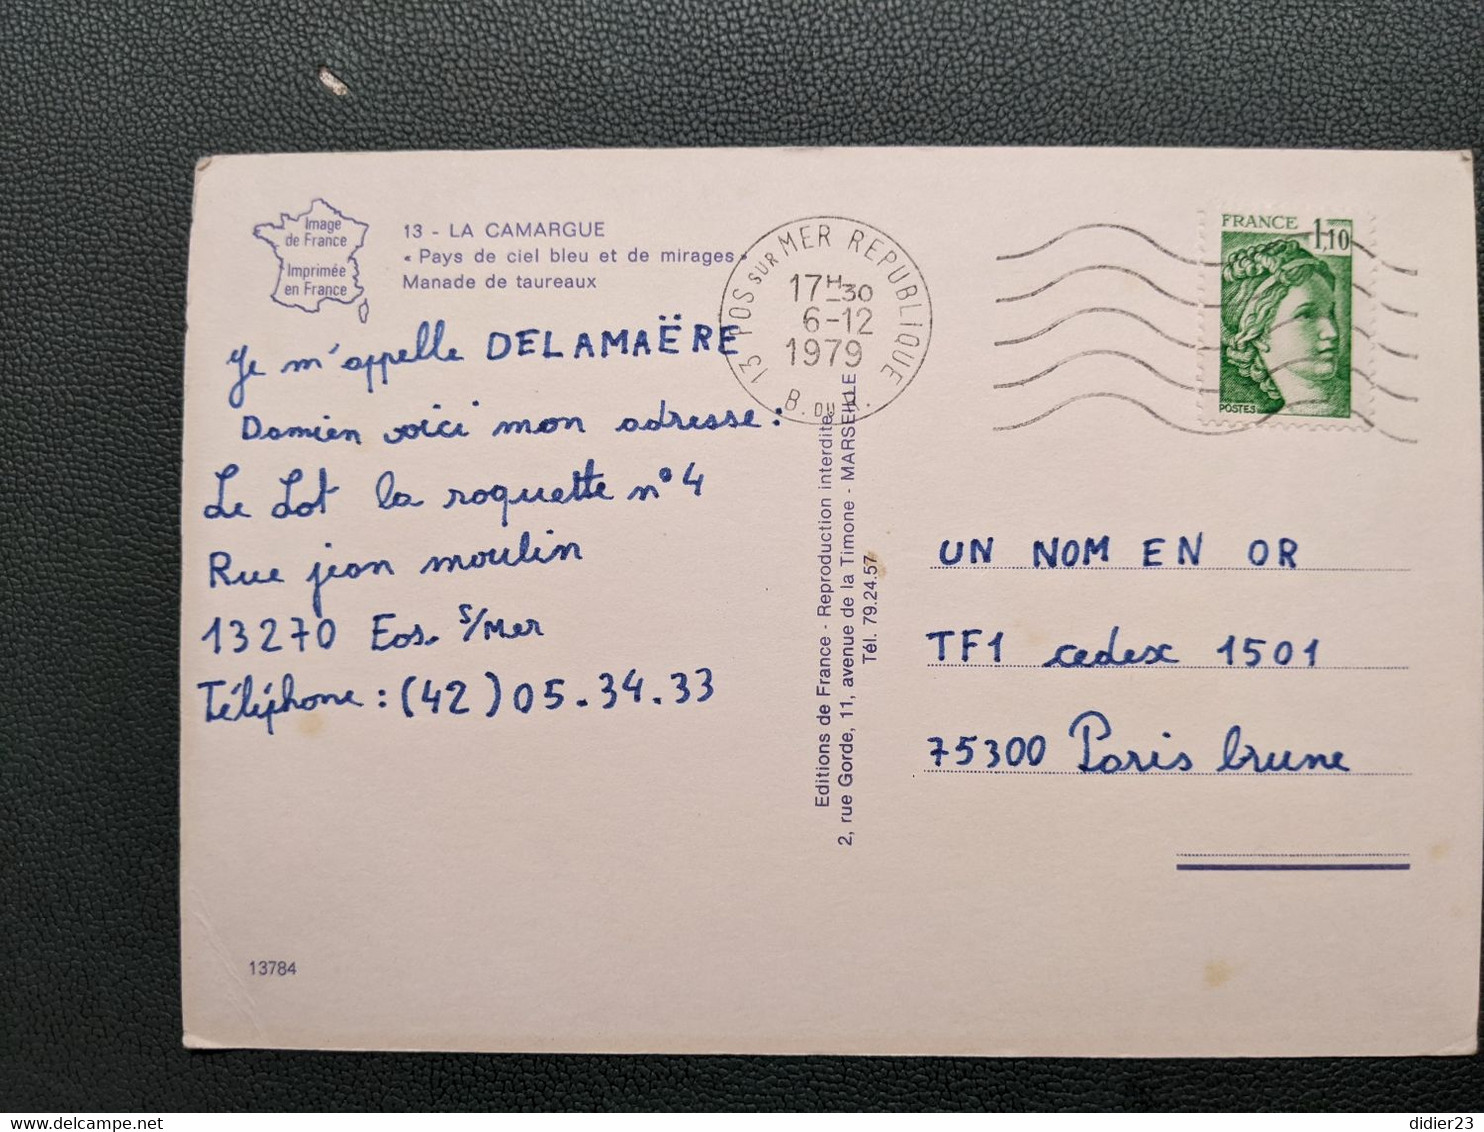 Image
de France
Imprimée
en France
13 - LA CAMARGUE
« Pays de ciel bleu et de mirages »
Manade de taureaux
13 FOS SUR MER REPUBLIQUE
17H30
6-12
1979
B. DU R.
FRANCE 1,10
POSTES
Je m'appelle DELAMAËRE
Damien voici mon adresse :
Le Lot la roquette n°4
Rue jean moulin
13270 Fos. S/Mer
Téléphone : (42) 05.34.33
Editions de France - Reproduction interdite
2, rue Gorde, 11, avenue de la Timone - MARSEILLE
Tél. 79.24.57
UN NOM EN OR
TF1 cedex 1501
75300 Paris brune
13784
didier23